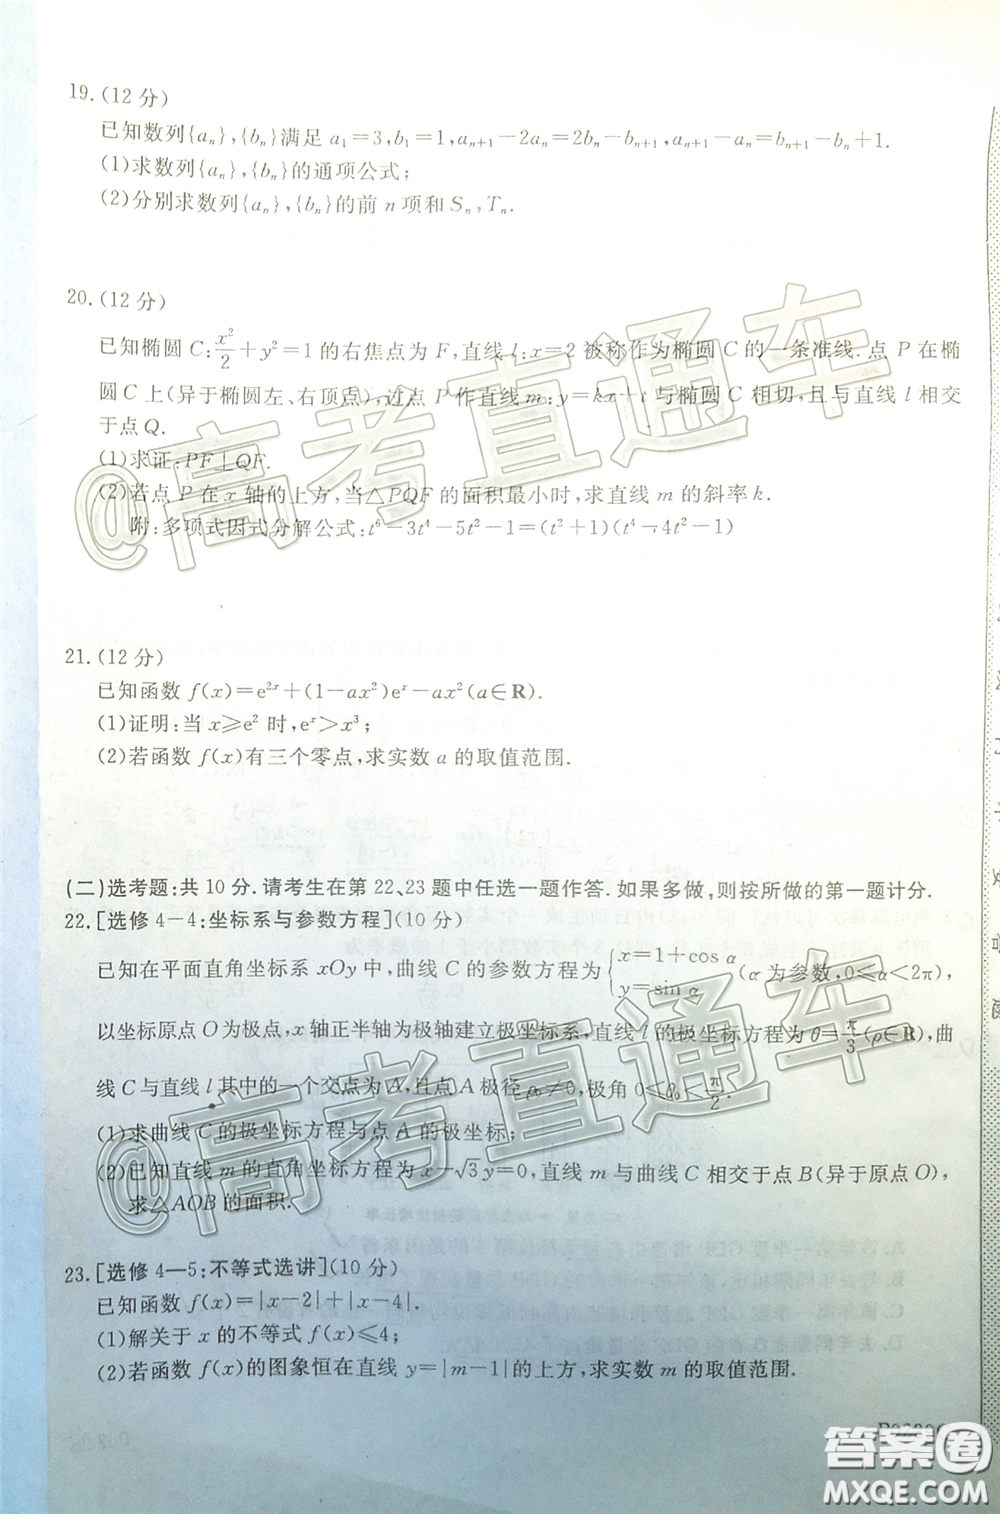 19.(12分)
已知数列{aₙ},{bₙ}满足 a₁=3,b₁=1,aₙ₊₁-2aₙ=2bₙ-bₙ₊₁,aₙ₊₁-aₙ=bₙ₊₁-bₙ+1.
(1)求数列{aₙ},{bₙ}的通项公式;
(2)分别求数列{aₙ},{bₙ}的前 n 项和 Sₙ,Tₙ.
20.(12分)
已知椭圆 C:x²/2+y²=1的右焦点为 F,直线 l:x=2 被称作为椭圆 C 的一条准线.点 P 在椭
圆 C 上(异于椭圆左、右顶点),过点 P 作直线 m:y=kx+t 与椭圆 C 相切,且与直线 l 相交
于点Q.
(1)求证:PF⊥QF.
(2)若点 P 在 x 轴的上方,当△PQF 的面积最小时,求直线 m 的斜率 k.
附:多项式因式分解公式:t⁶-3t⁴-5t²-1=(t²+1)(t⁴-4t²-1)
21.(12分)
已知函数 f(x)=e²ˣ+(1-ax²)eˣ-ax²(a∈R).
(1)证明:当 x≥e² 时,eˣ>x³;
(2)若函数 f(x)有三个零点,求实数 a 的取值范围.
(二)选考题:共 10 分.请考生在第 22、23 题中任选一题作答.如果多做,则按所做的第一题计分.
22.[选修 4-4:坐标系与参数方程](10 分)
已知在平面直角坐标系 xOy 中,曲线 C 的参数方程为{x=1+cos α y=sin α(α 为参数,0≤α<2π),
以坐标原点 O 为极点,x 轴正半轴为极轴建立极坐标系,直线 l 的极坐标方程为 θ=π/3(ρ∈R),曲
线 C 与直线 l 其中的一个交点为 A,且点 A 极径 ρ₀≠0,极角 0≤θ₀<π/2.
(1)求曲线 C 的极坐标方程与点 A 的极坐标;
(2)已知直线 m 的直角坐标方程为 x-√3y=0,直线 m 与曲线 C 相交于点 B(异于原点 O),
求△AOB 的面积.
23.[选修 4-5:不等式选讲](10 分)
已知函数 f(x)=|x-2|+|x-4|.
(1)解关于 x 的不等式 f(x)≤4;
(2)若函数 f(x)的图象恒在直线 y=|m-1|的上方,求实数 m 的取值范围.
@高考直通车
@高考直通车
答案圈
MXQE.COM